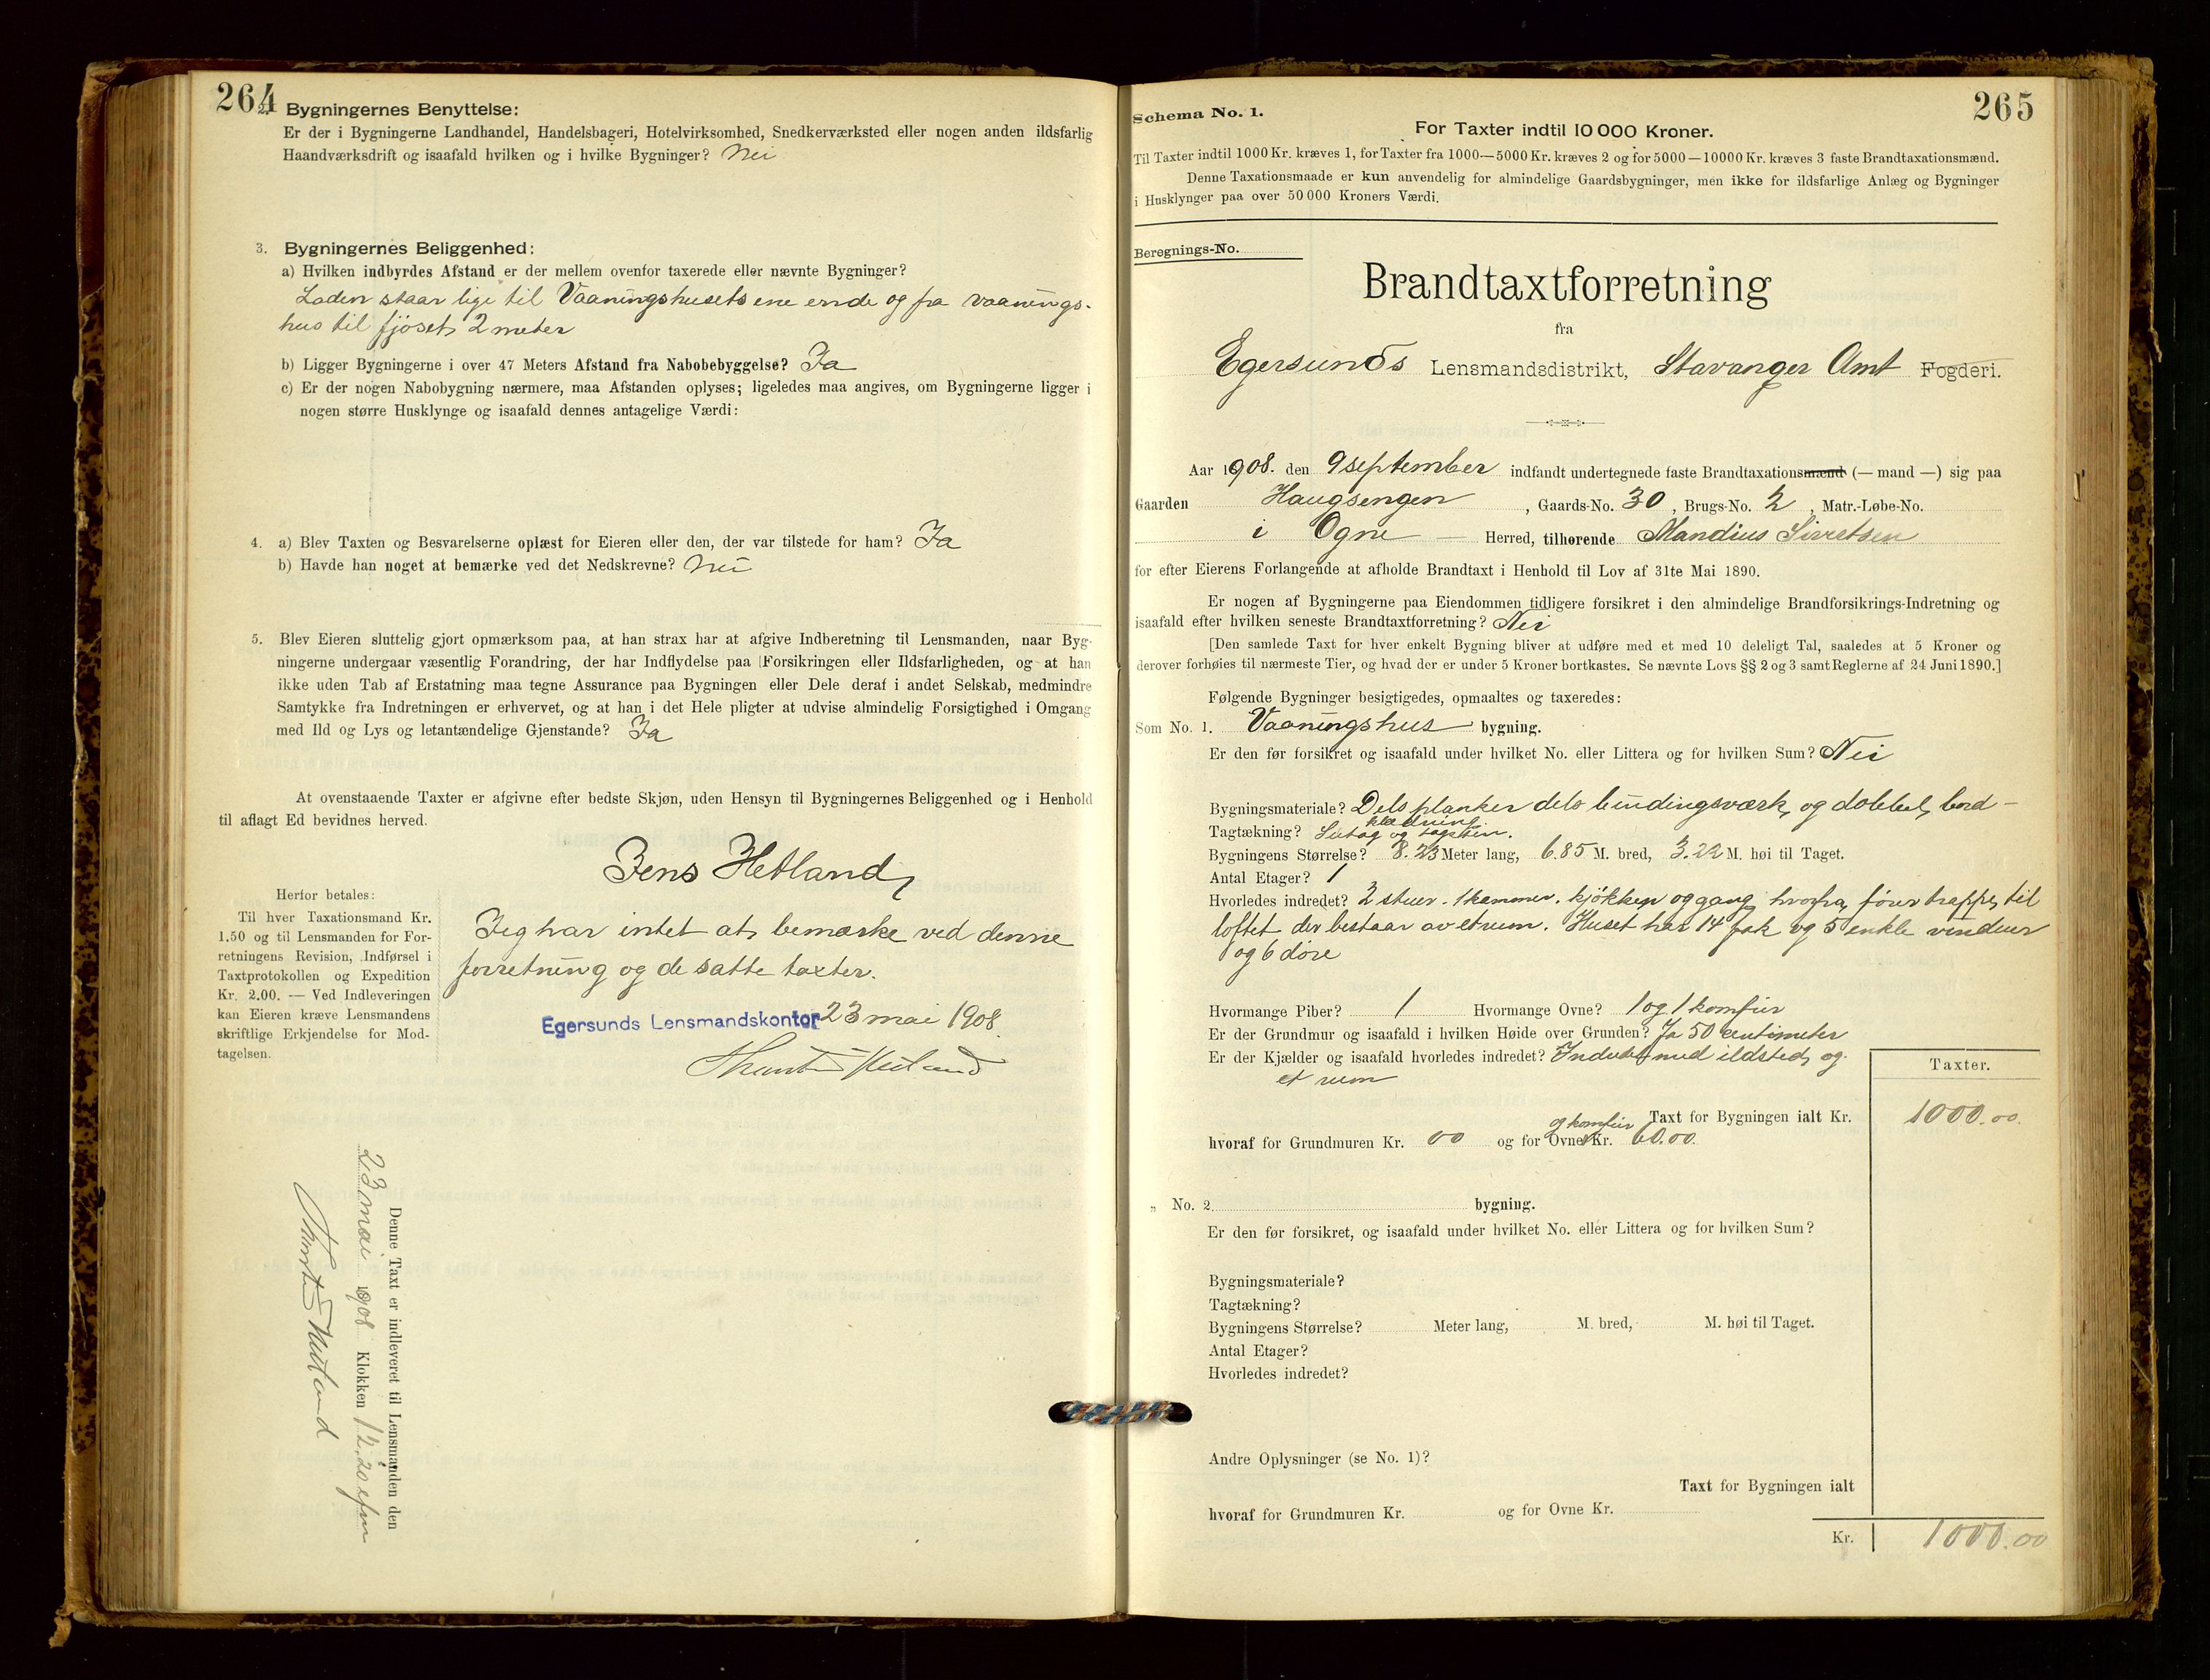 264
2. Bygningernes Benyttelse:
Er der i Bygningerne Landhandel, Handelsbageri, Hotelvirksomhed, Snedkerværksted eller nogen anden ildsfarlig
Haandværksdrift og isaafald hvilken og i hvilke Bygninger? Nei
3. Bygningernes Beliggenhed:
a) Hvilken indbyrdes Afstand er der mellem ovenfor taxerede eller nævnte Bygninger?
Laden staar lige til Vaaningshusets ene ende og fra vaanings-
hus til fjøset 2 meter
b) Ligger Bygningerne i over 47 Meters Afstand fra Nabobebyggelse? Ja
c) Er der nogen Nabobygning nærmere, maa Afstanden oplyses; ligeledes maa angives, om Bygningerne ligger i
nogen større Husklynge og isaafald dennes antagelige Værdi:
4. a) Blev Taxten og Besvarelserne oplæst for Eieren eller den, der var tilstede for ham? Ja
b) Havde han noget at bemærke ved det Nedskrevne? Nei
5. Blev Eieren sluttelig gjort opmærksom paa, at han strax har at afgive Indberetning til Lensmanden, naar Byg-
ningerne undergaar væsentlig Forandring, der har Indflydelse paa Forsikringen eller Ildsfarligheden, og at han
ikke uden Tab af Erstatning maa tegne Assurance paa Bygningen eller Dele deraf i andet Selskab, medmindre
Samtykke fra Indretningen er erhvervet, og at han i det Hele pligter at udvise almindelig Forsigtighed i Omgang
med Ild og Lys og letantændelige Gjenstande? Ja
At ovenstaaende Taxter er afgivne efter bedste Skjøn, uden Hensyn til Bygningernes Beliggenhed og i Henhold
til aflagt Ed bevidnes herved.
Jens Hetland
Herfor betales:
Til hver Taxationsmand Kr.
1.50 og til Lensmanden for For-
retningens Revision, Indførsel i
Taxtprotokollen og Expedition
Kr. 2.00. — Ved Indleveringen
kan Eieren kræve Lensmandens
skriftlige Erkjendelse for Mod-
tagelsen.
Jeg har intet at bemærke ved denne
forretning og de satte taxter.
Egersunds Lensmandskontor 23 mai 1908
Denne Taxt er indleveret til Lensmanden den
23 mai 1908 Klokken 12.20 efm
265
Schema No. 1.
For Taxter indtil 10 000 Kroner.
Til Taxter indtil 1000 Kr. kræves 1, for Taxter fra 1000—5000 Kr. kræves 2 og for 5000—10000 Kr. kræves 3 faste Brandtaxationsmænd.
Denne Taxationsmaade er kun anvendelig for almindelige Gaardsbygninger, men ikke for ildsfarlige Anlæg og Bygninger
i Husklynger paa over 50 000 Kroners Værdi.
Beregnings-No.
Brandtaxtforretning
fra
Egersunds Lensmandsdistrikt, Stavanger Amt Fogderi.
Aar 1908. den 9 september indfandt undertegnede faste Brandtaxationsmænd (— mand —) sig paa
Gaarden Haugsengen, Gaards-No. 30, Brugs-No. 2, Matr.-Løbe-No.
i Ogne — Herred, tilhørende Mandius Sivertsen
for efter Eierens Forlangende at afholde Brandtaxt i Henhold til Lov af 31te Mai 1890.
Er nogen af Bygningerne paa Eiendommen tidligere forsikret i den almindelige Brandforsikrings-Indretning og
isaafald efter hvilken seneste Brandtaxtforretning? Nei
[Den samlede Taxt for hver enkelt Bygning bliver at udføre med et med 10 deleligt Tal, saaledes at 5 Kroner og
derover forhøies til nærmeste Tier, og hvad der er under 5 Kroner bortkastes. Se nævnte Lovs §§ 2 og 3 samt Reglerne af 24 Juni 1890.]
Følgende Bygninger besigtigedes, opmaaltes og taxeredes:
Som No. 1. Vaaningshus bygning.
Er den før forsikret og isaafald under hvilket No. eller Littera og for hvilken Sum? Nei
Bygningsmateriale? Dels planker dels bindingsværk og dobbel bord-
klædning.
Tagtækning? Sutag og tagsten.
Bygningens Størrelse? 8.23 Meter lang, 6.85 M. bred, 3.22 M. høi til Taget.
Antal Etager? 1
Hvorledes indredet? 2 stuer. 1 kammer. kjøkken og gang hvorfra fører trappe til
loftet der bestaar av et rum. Huset har 14 fak og 5 enkle vinduer
og 6 døre
Hvormange Piber? 1 Hvormange Ovne? 1 og 1 komfur
Er der Grundmur og isaafald i hvilken Høide over Grunden? Ja 50 centimeter
Er der Kjælder og isaafald hvorledes indredet? Indredet med ildsted og
et rum
Taxter.
Taxt for Bygningen ialt Kr. 1000.00
og komfur
hvoraf for Grundmuren Kr. 00 og for Ovne Kr. 60.00
„ No. 2 bygning.
Er den før forsikret, og isaafald under hvilket No. eller Littera og for hvilken Sum?
Bygningsmateriale?
Tagtækning?
Bygningens Størrelse? Meter lang, M. bred, M. høi til Taget.
Antal Etager?
Hvorledes indredet?
Andre Oplysninger (se No. 1)?
Taxt for Bygningen ialt
hvoraf for Grundmuren Kr. og for Ovne Kr.
Kr. 1000.00